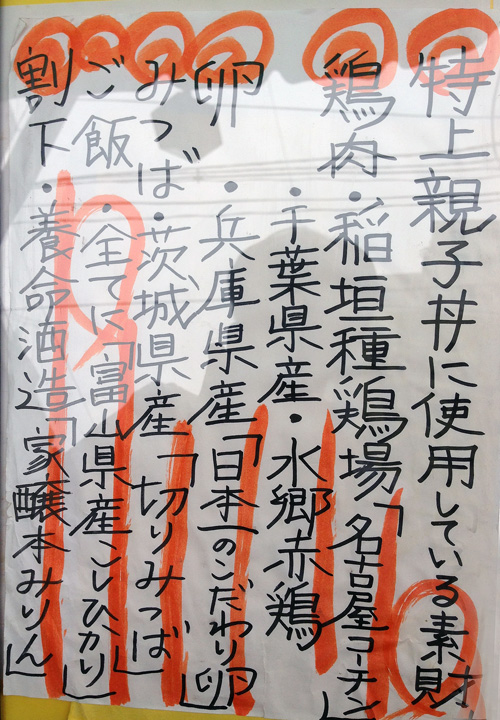 特上親子丼に使用している素財
鶏肉・稲垣種鶏場「名古屋コーチン」
・千葉県産・水郷赤鶏
卵・兵庫県産「日本一のこだわり卵」
みつば・茨城県産「切りみつば」
ご飯・全てに「富山県産こしひかり」
割下・養命酒造「家醸本みりん」